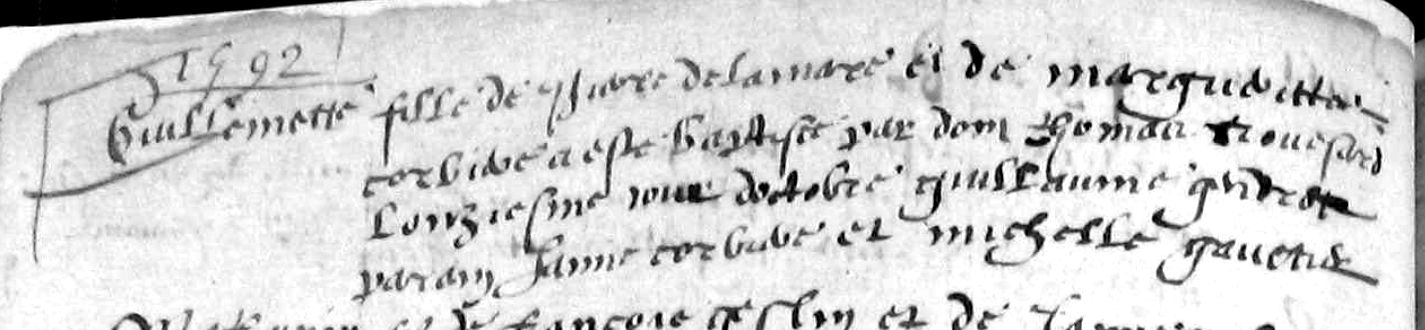 1592
Guillemette fille de pierre delamare et de margueitte
corbive a este baptisee par dom thomas trouessard
lonziesme jour doctobre guillaume gendron
parain Janne corbive et michelle
et de francois geslin et de